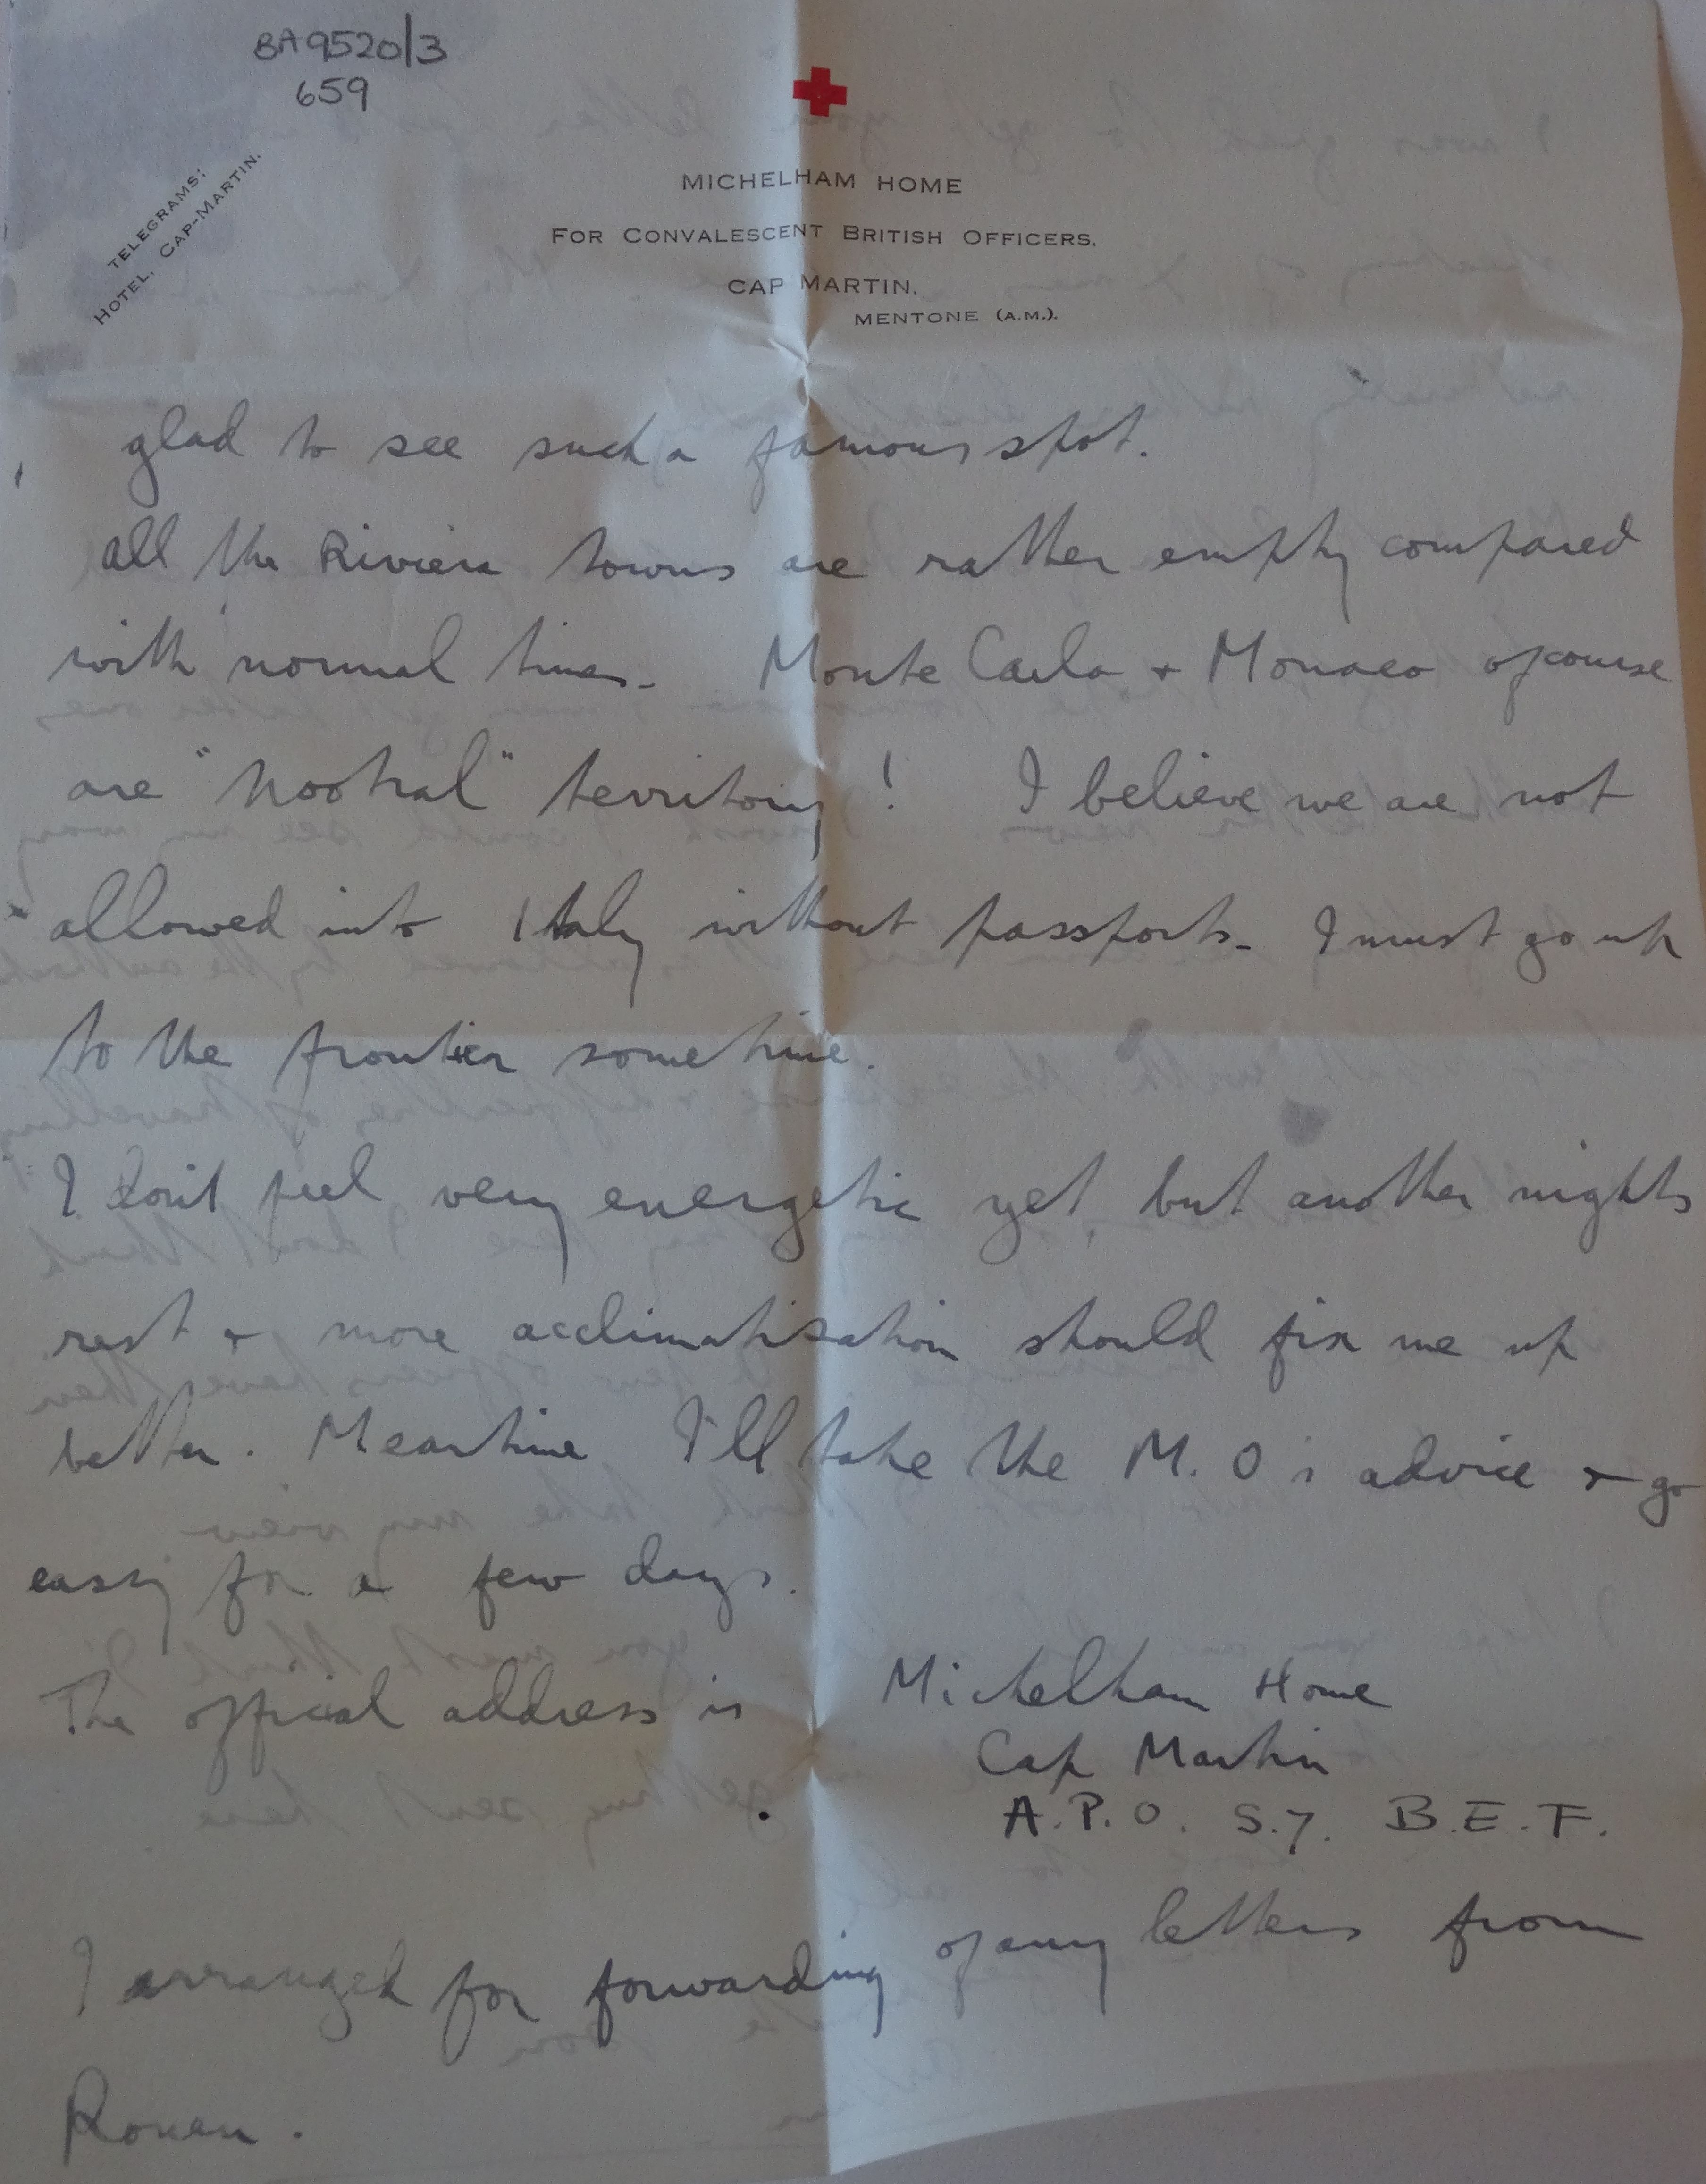 BA9520/3
659
TELEGRAMS:
HOTEL, CAP-MARTIN.
MICHELHAM HOME
FOR CONVALESCENT BRITISH OFFICERS.
CAP MARTIN.
MENTONE (A.M.).
glad to see such a famous spot.
all the Riviera towns are rather empty compared
with normal times. Monte Carlo + Monaco of course
are "Nootral" territory! I believe we are not
allowed into Italy without passports. I must go up
to the frontier sometime.
I don't feel very energetic yet, but another nights
rest + more acclimatisation should fix me up
better. Meantime I'll take the M.O's advice + go
easy for a few days.
The official address is Michelham Home
Cap Martin
A.P.O. S.7. B.E.F.
I arranged for forwarding of any letters from
Rouen.